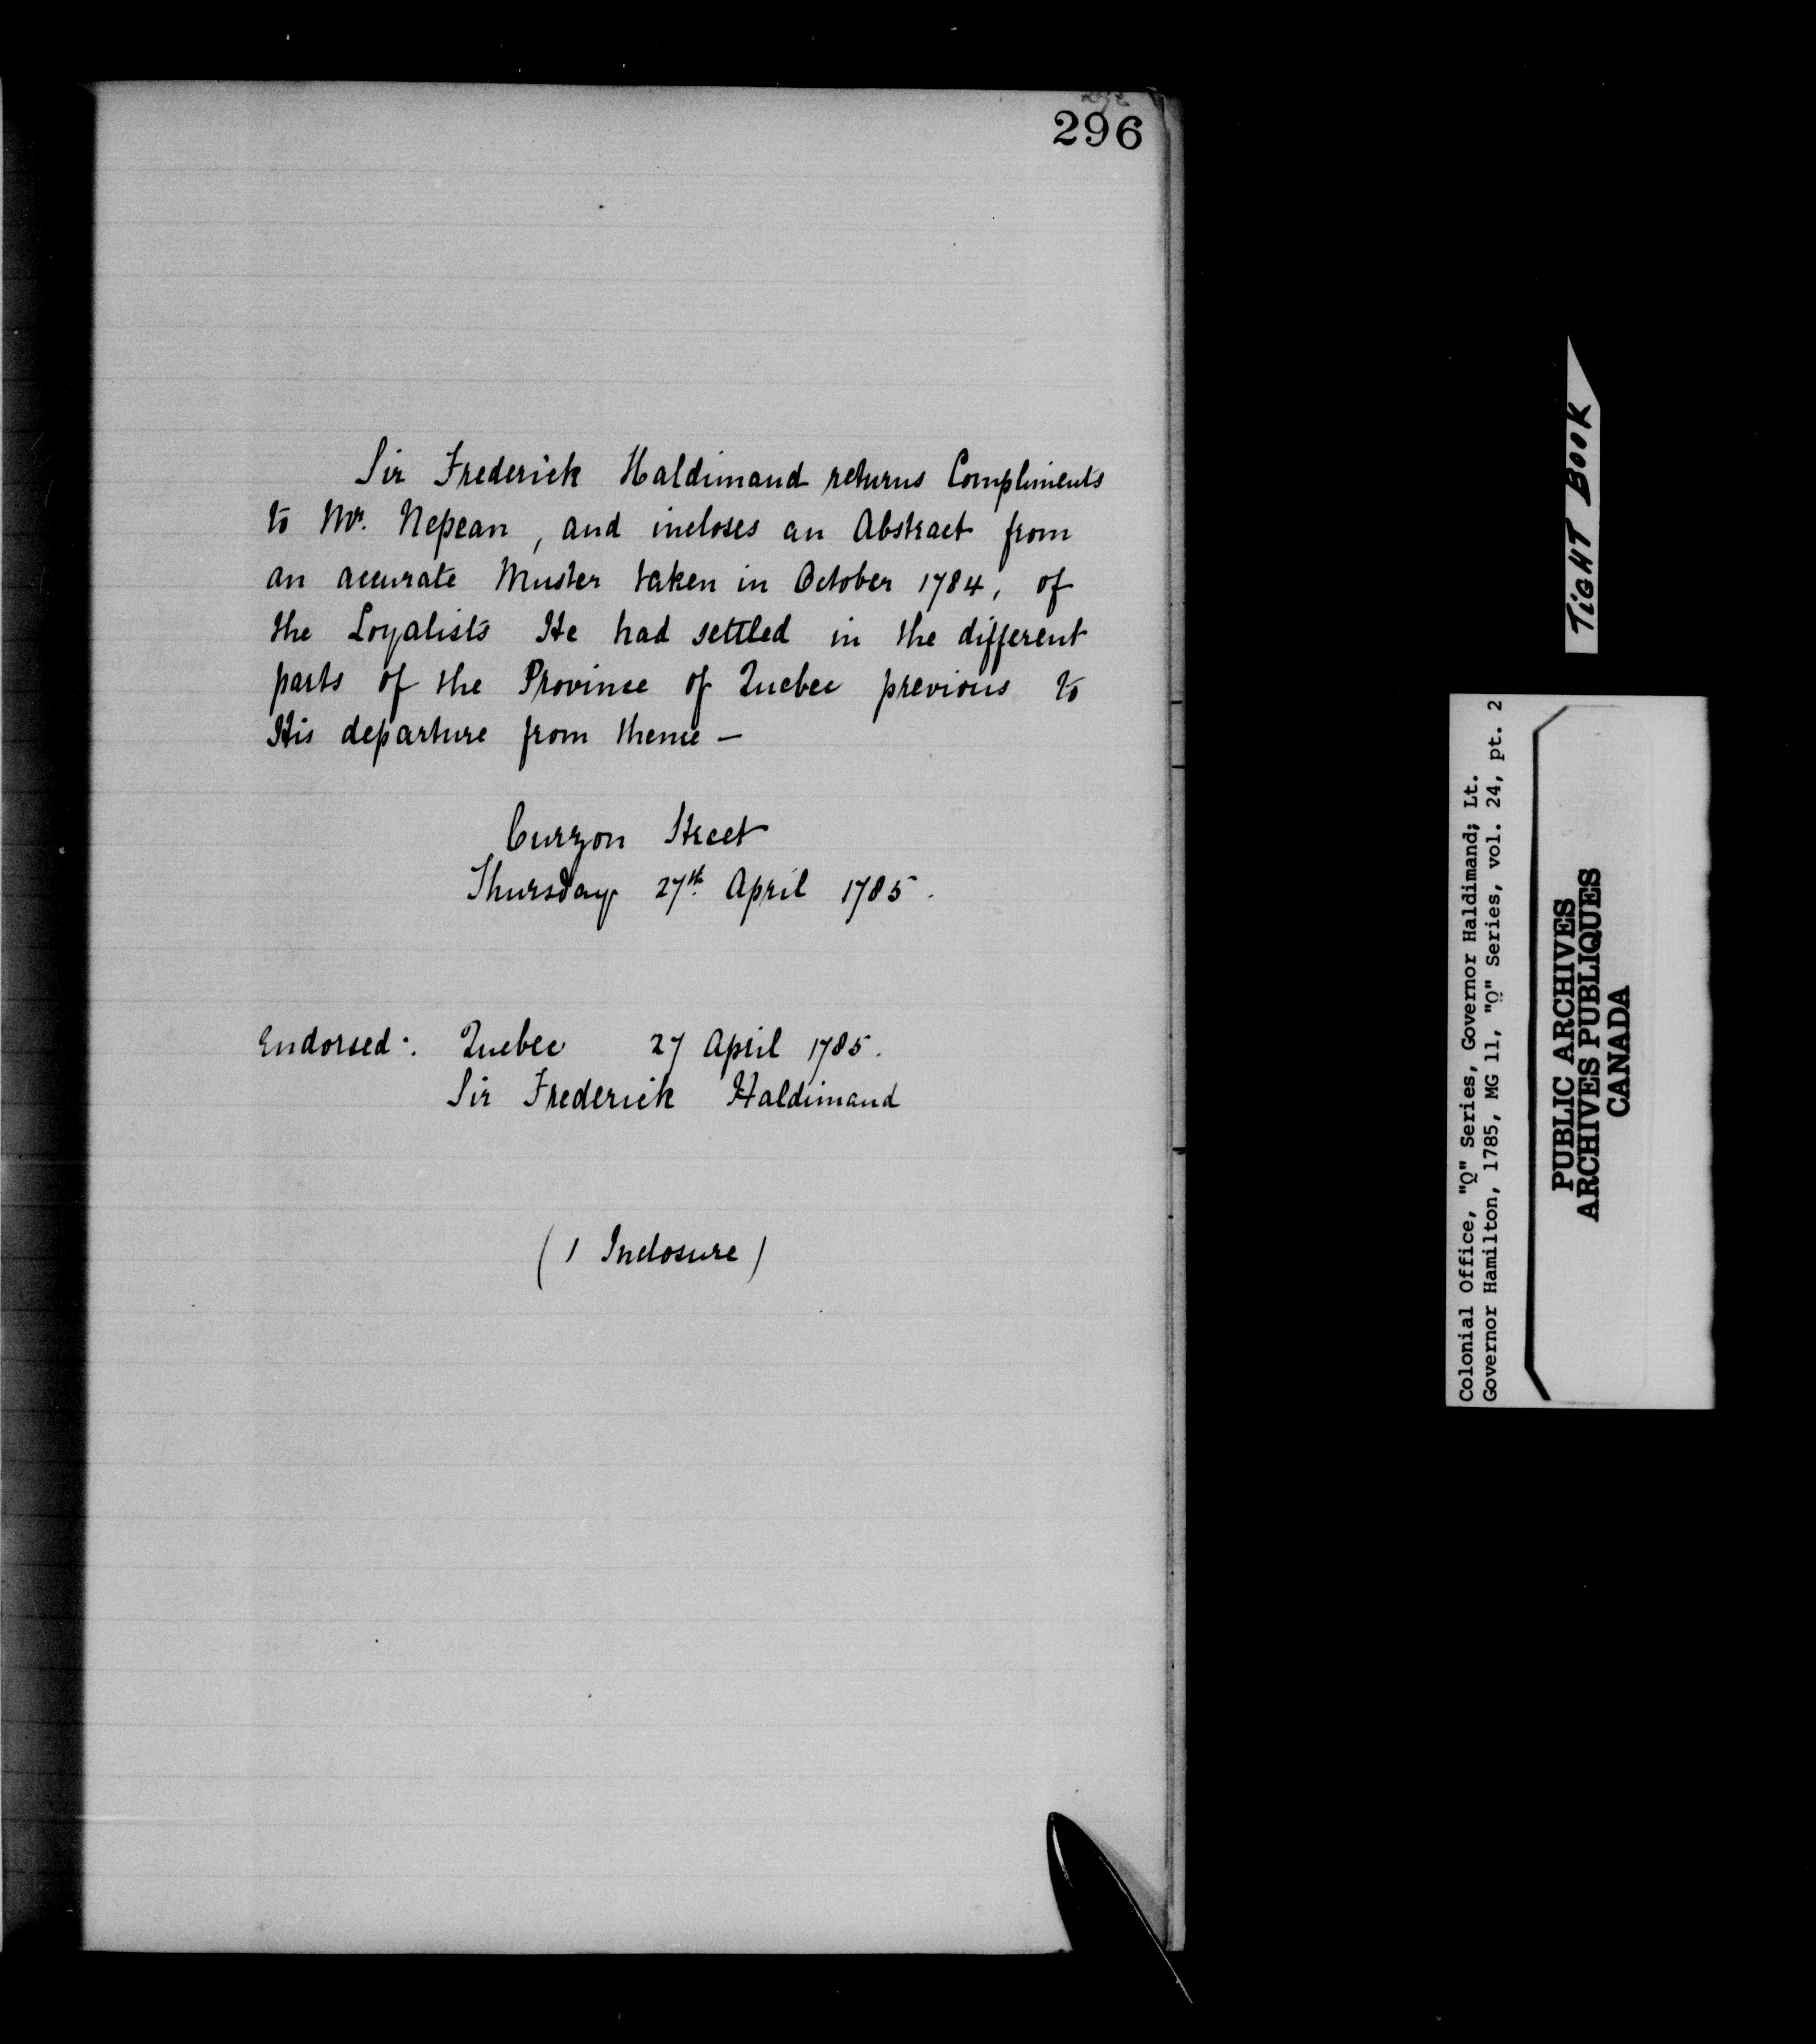 296
Sir Frederick Haldimand returns Compliments
to Mr. Nepean, and incloses an Abstract from
an accurate Muster taken in October 1784, of
the Loyalists He had settled in the different
parts of the Province of Quebec previous to
His departure from thence —
Curzon Street
Thursday 27th April 1785.
Endorsed :. Quebec 27 April 1785.
Sir Frederick Haldimand
(1 Inclosure)
TIGHT BOOK
Colonial Office, "Q" Series, Governor Haldimand; Lt.
Governor Hamilton, 1785, MG 11, "Q" Series, vol. 24, pt. 2
PUBLIC ARCHIVES
ARCHIVES PUBLIQUES
CANADA